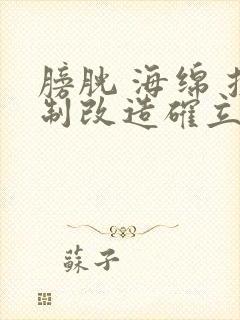 膀胱 海绵
制改造確立
蘇子